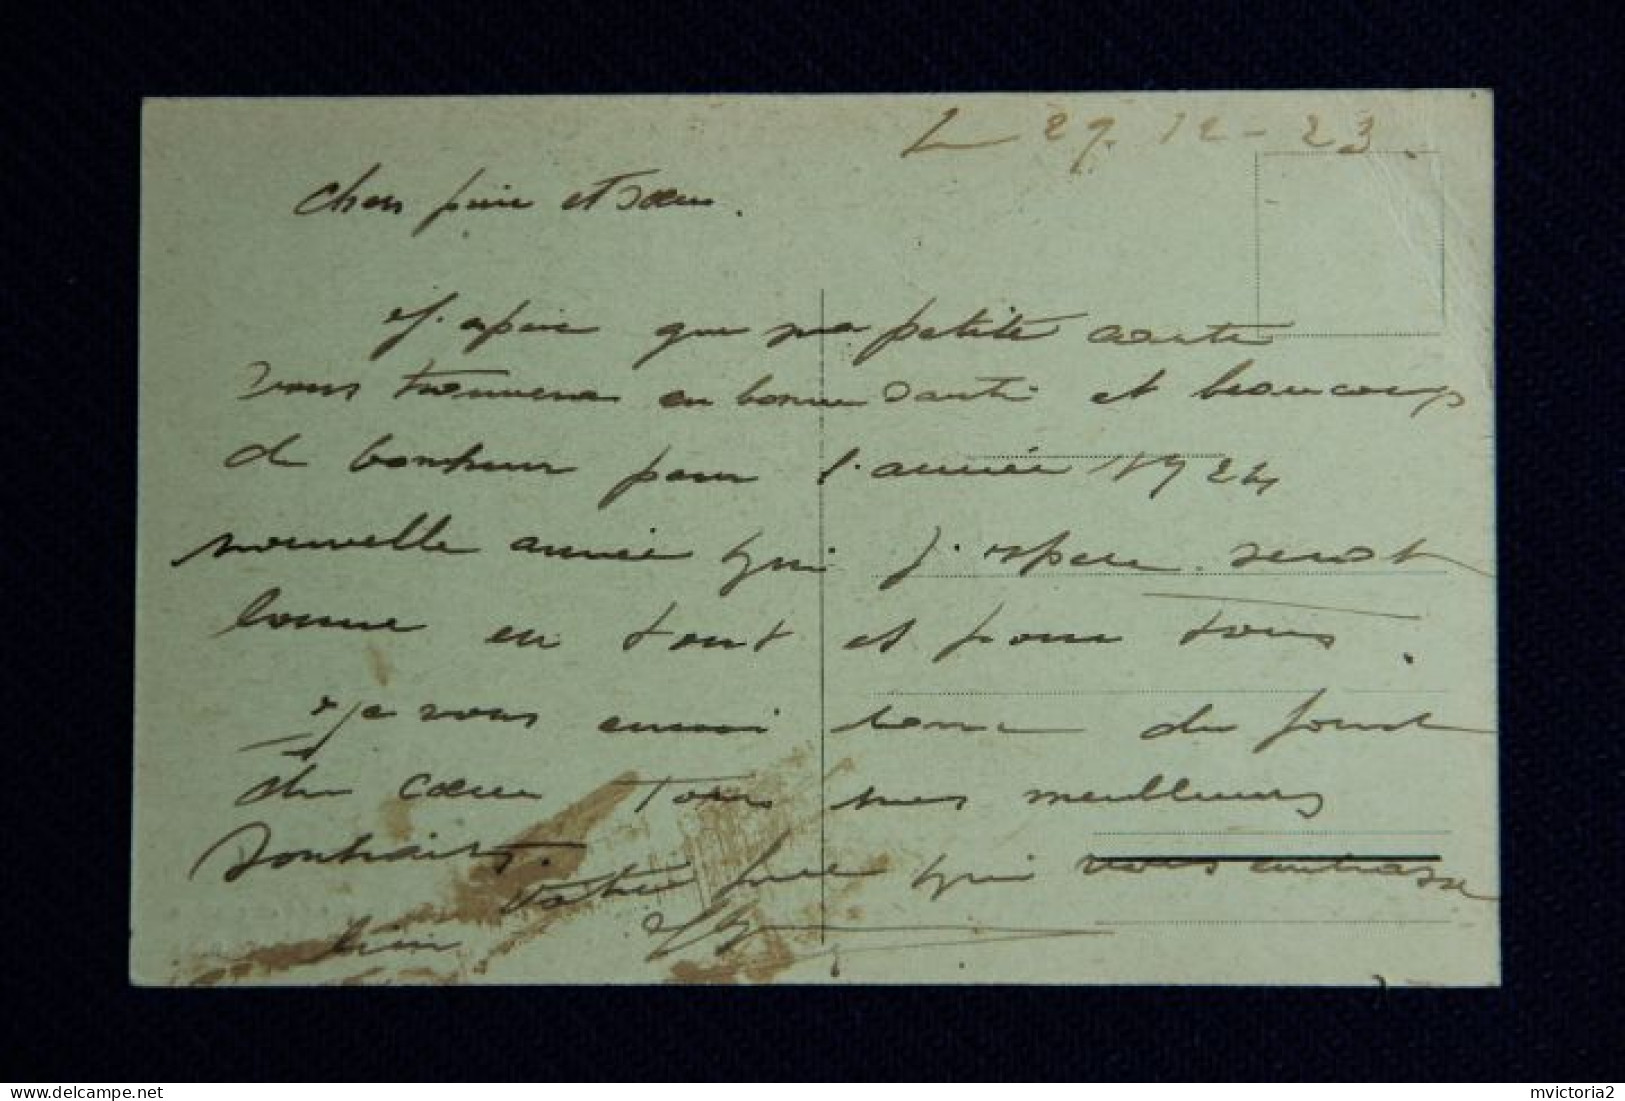 L 27. 12 - 23.
chers frère et sœur.
J'espère que ma petite carte
vous trouvera en bonne santé et beaucoup
de bonheur pour l'année 1924
nouvelle année qui j'espère serat
bonne en tout et pour tous.
je vous envoi donc du fond
du cœur tous mes meilleurs
souhaits.
votre frère qui vous embrasse
bien
mvictoria2